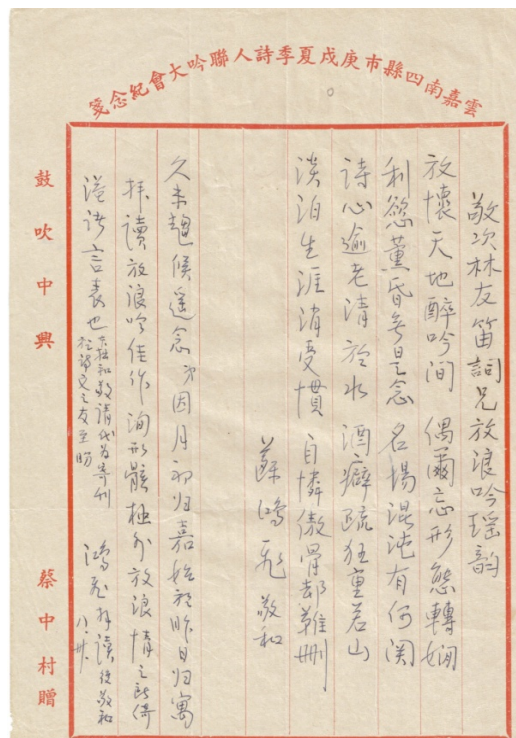 雲嘉南四縣市庚戌夏季詩人聯吟大會紀念箋
敬次林友笛詞兄放浪吟瑤韵
放懷天地醉吟间 偶爾忘形態轉嫻
利慾薰昏無是念 名場混沌有何関
詩心逾老清於水 酒癖疏狂重若山
淡泊生涯消受慣 自憐傲骨却難刪
蘇鴻飛敬和
久未趨候遥念 弟因月初归嘉始於昨日归寓
拜讀放浪吟佳作洵形骸極外放浪情之所倚
溢於言表也 敬請代为寄刊
於詩文之友至盼
鴻飛拜讀後敬和
八.廿.
鼓吹中興
蔡中村贈